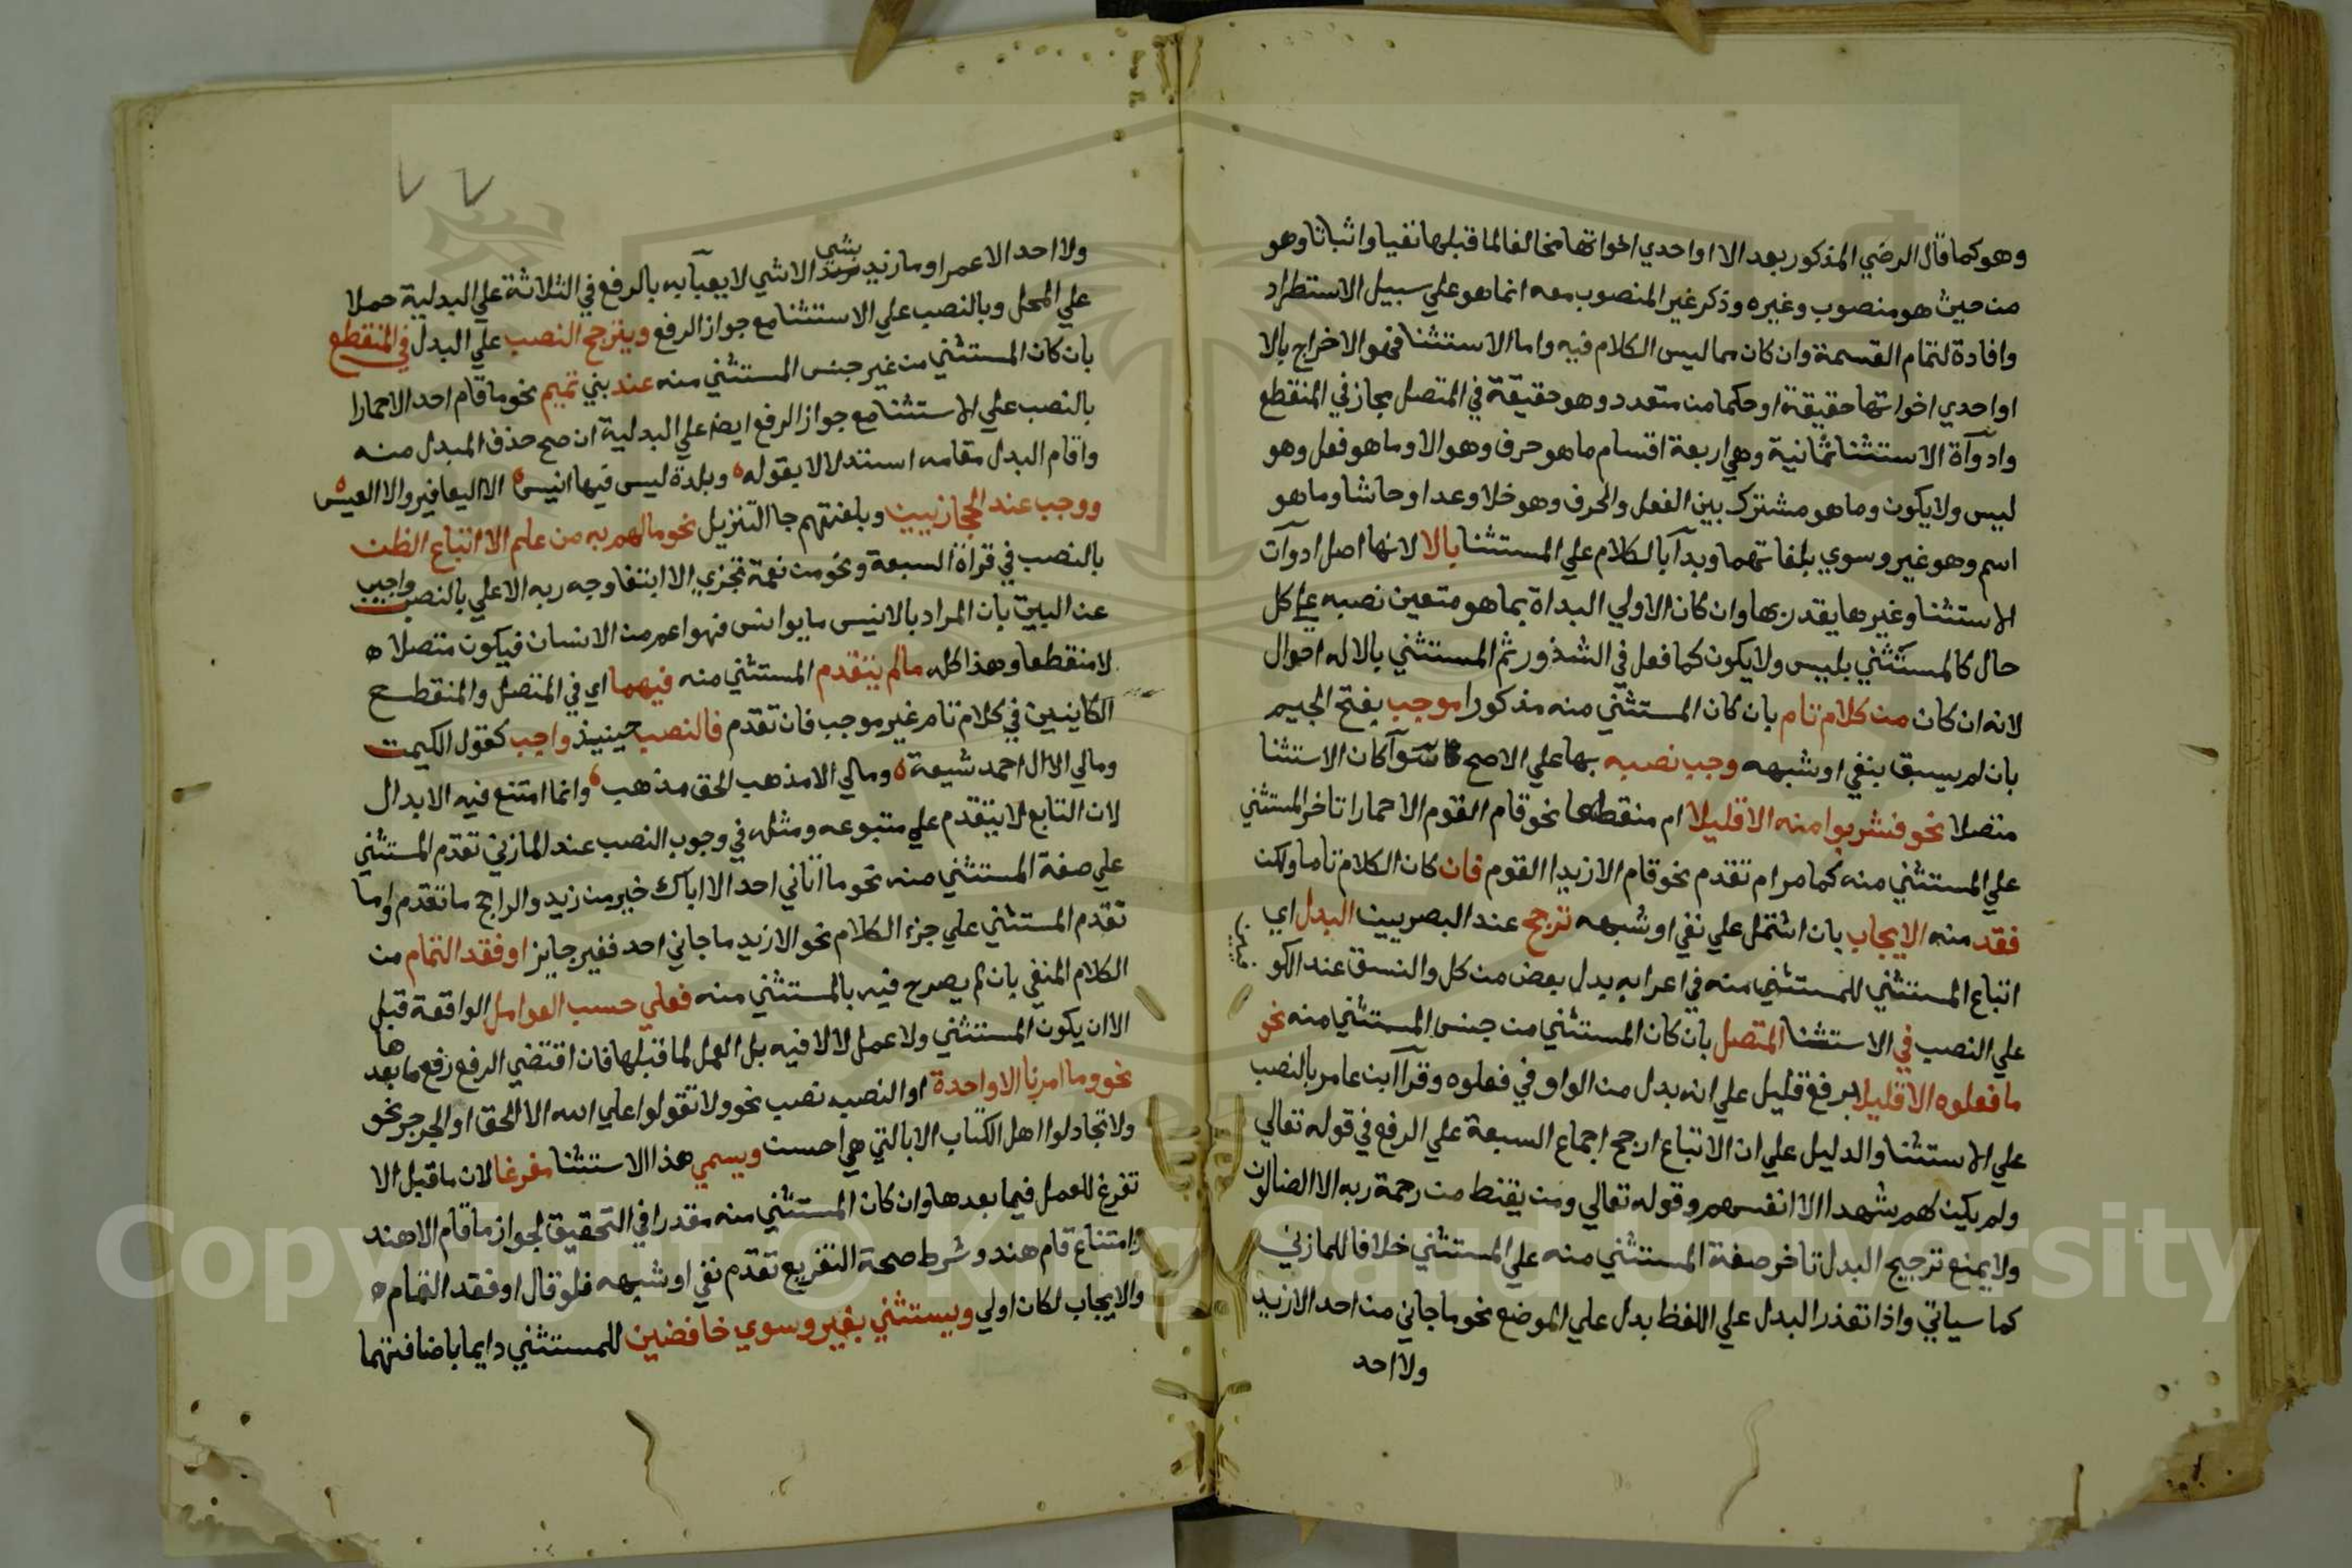 وهو كما قال الرضي المذكور بعد الا او احدي اخواتها مخالفا لما قبلها نفيا واثباتا وهو
من حيث هو منصوب وغيره وذكر غير المنصوب معه انما هو علي سبيل الاستطراد
وافادة لتمام القسمة وان كان مما ليس الكلام فيه واما الاستثنا فهو الاخراج بالا
او احدي اخواتها حقيقة او حكما من متعدد وهو حقيقة في المتصل مجاز في المنقطع
وادوآة الاستثنا ثمانية وهي اربعة اقسام ما هو حرف وهو الا وما هو فعل وهو
ليس ولا يكون وما هو مشترك بين الفعل والحرف وهو خلا وعدا وحاشا وما هو
اسم وهو غير وسوي بلغاتهما وبدآ بالكلام علي المستثنا بالا لانها اصل ادوآت
الاستثنا وغيرها يقدر بها وان كان الاولي البداة بما هو متعين نصبه علي كل
حال كالمستثني بليس ولا يكون كما فعل في الشذور ثم المستثني بالا له احوال
لانه ان كان من كلام تام بان كان المستثني منه مذكورا موجب بفتح الجيم
بان لم يسبق بنفي او شبهه وجب نصبه بها علي الاصح سوآ كان الاستثنا
متصلا نحو فشربوا منه الا قليلا ام منقطعا نحو قام القوم الا حمارا تاخر المستثني
علي المستثني منه كما مر ام تقدم نحو قام الا زيدا القوم فان كان الكلام تاما ولكن
فقد منه الايجاب بان اشتمل علي نفي او شبهه ترجح عند البصريين البدل اي
اتباع المستثني للمستثني منه في اعرابه بدل بعض من كل والنسق عند الكو
فيين
علي النصب في الاستثنا المتصل بان كان المستثني من جنس المستثني منه نحو
ما فعلوه الا قليلا برفع قليل علي انه بدل من الواو في فعلوه وقرآ ابن عامر بالنصب
علي الاستثنا والدليل علي ان الاتباع ارجح اجماع السبعة علي الرفع في قوله تعالي
ولم يكن لهم شهدا الا انفسهم وقوله تعالي ومن يقنط من رحمة ربه الا الضالون
ولا يمنع ترجيح البدل تاخر صفة المستثني منه علي المستثني خلافا للمازني
كما سياتي واذا تعذر البدل علي اللفظ بدل علي الموضع نحو ما جاني من احد الا زيد
ولا احد
٧٧
ولا احد الا عمرا وما زيد بشي الا شي لا يعبآ به بالرفع في الثلاثة علي البدلية حملا
علي المحل وبالنصب علي الاستثنا مع جواز الرفع ويترجح النصب علي البدل في المنقطع
بان كان المستثني من غير جنس المستثني منه عند بني تميم نحو ما قام احد الا حمارا
بالنصب علي الاستثنا مع جواز الرفع ايضا علي البدلية ان صح حذف المبدل منه
واقام البدل مقامه استدلالا بقوله وبلدة ليس فيها انيس الا اليعافير والا العيس
ووجب عند الحجازيين وبلغتهم جا التنزيل نحو ما لهم به من علم الا اتباع الظن
بالنصب في قراة السبعة ونحو من نعمة تجزي الا ابتغا وجه ربه الاعلي بالنصب واجيب
عن البيت بان المراد بالانيس ما يوانس فهو اعم من الانسان فيكون متصلا
لا منقطعا وهذا كله ما لم يتقدم المستثني منه فيهما اي في المتصل والمنقطع
الكاينين في كلام تام غير موجب فان تقدم فالنصب حينيذ واجب كقول الكيمت
ومالي الا ال احمد شيعة ومالي الا مذهب الحق مذهب وانما امتنع فيه الابدال
لان التابع لا يتقدم علي متبوعه ومثله في وجوب النصب عند المازني تقدم المستثني
علي صفة المستثني منه نحو ما اتاني احد الا اباك خير من زيد والراجح ما تقدم واما
تقدم المستثني علي جزء الكلام نحو الا زيد ما جاني احد فغير جايز او فقد التمام من
الكلام المنفي بان لم يصرح فيه بالمستثني منه فعلي حسب العوامل الواقعة قبل
الا ان يكون المستثني ولا عمل لالا فيه بل العمل لما قبلها فان اقتضي الرفع رفع ما بعدها
نحو وما امرنا الا واحدة او النصب نصب نحو ولا تقولوا علي الله الا الحق او الجر جر نحو
ولا تجادلوا اهل الكتاب الا بالتي هي احسن ويسمي هذا الاستثنا مفرغا لان ما قبل الا
تفرغ للعمل فيما بعدها وان كان المستثني منه مقدرا في التحقيق لجواز ما قام الا هند
وامتناع قام هند وشرط صحة التفريع تقدم نفي او شبهه فلو قال او فقد التمام
والايجاب لكان اولي ويستثني بغير وسوي خافضين للمستثني دايما باضافتهما
Copyright © King Saud University